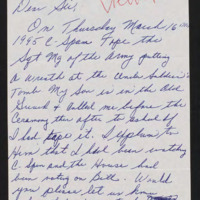 Dear Sir,
On Thursday March 16
1995 C-Span Tape the
Sgt Mg of the Army putting
a wreath at the
Tomb My Son is in the Old
Guard & called me before the
Ceremony then after to ask if
I had tape it. I explain to
Him that I had been watching
C-Span and the House had
been voting on Bills. Would
you please let us know